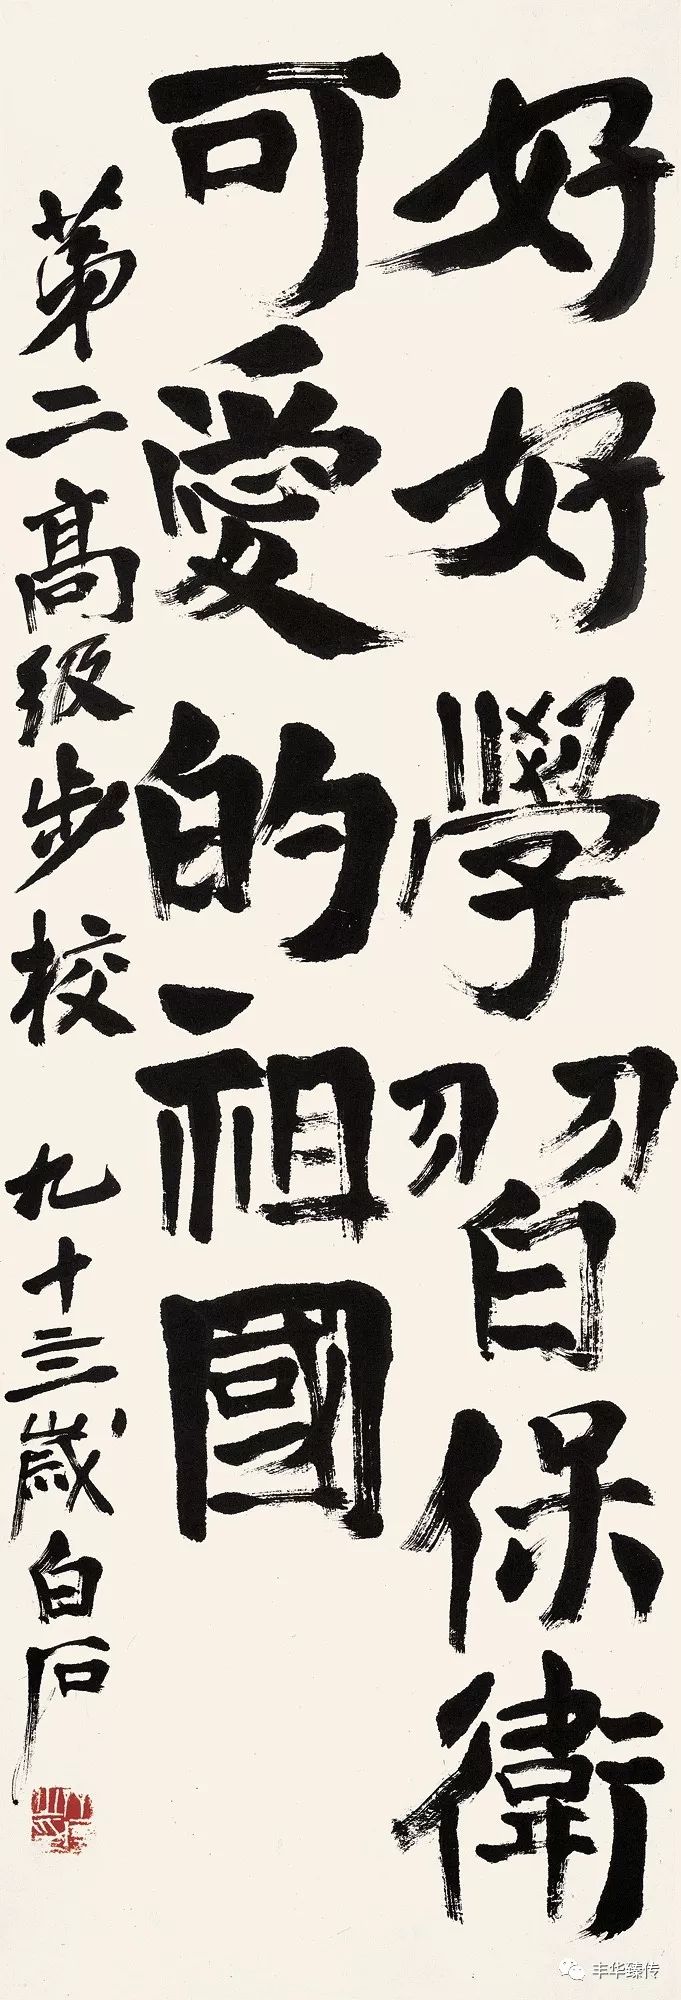 好好學習保衛
可愛的祖國
第二高级步校 九十三歲白石
丰华臻传